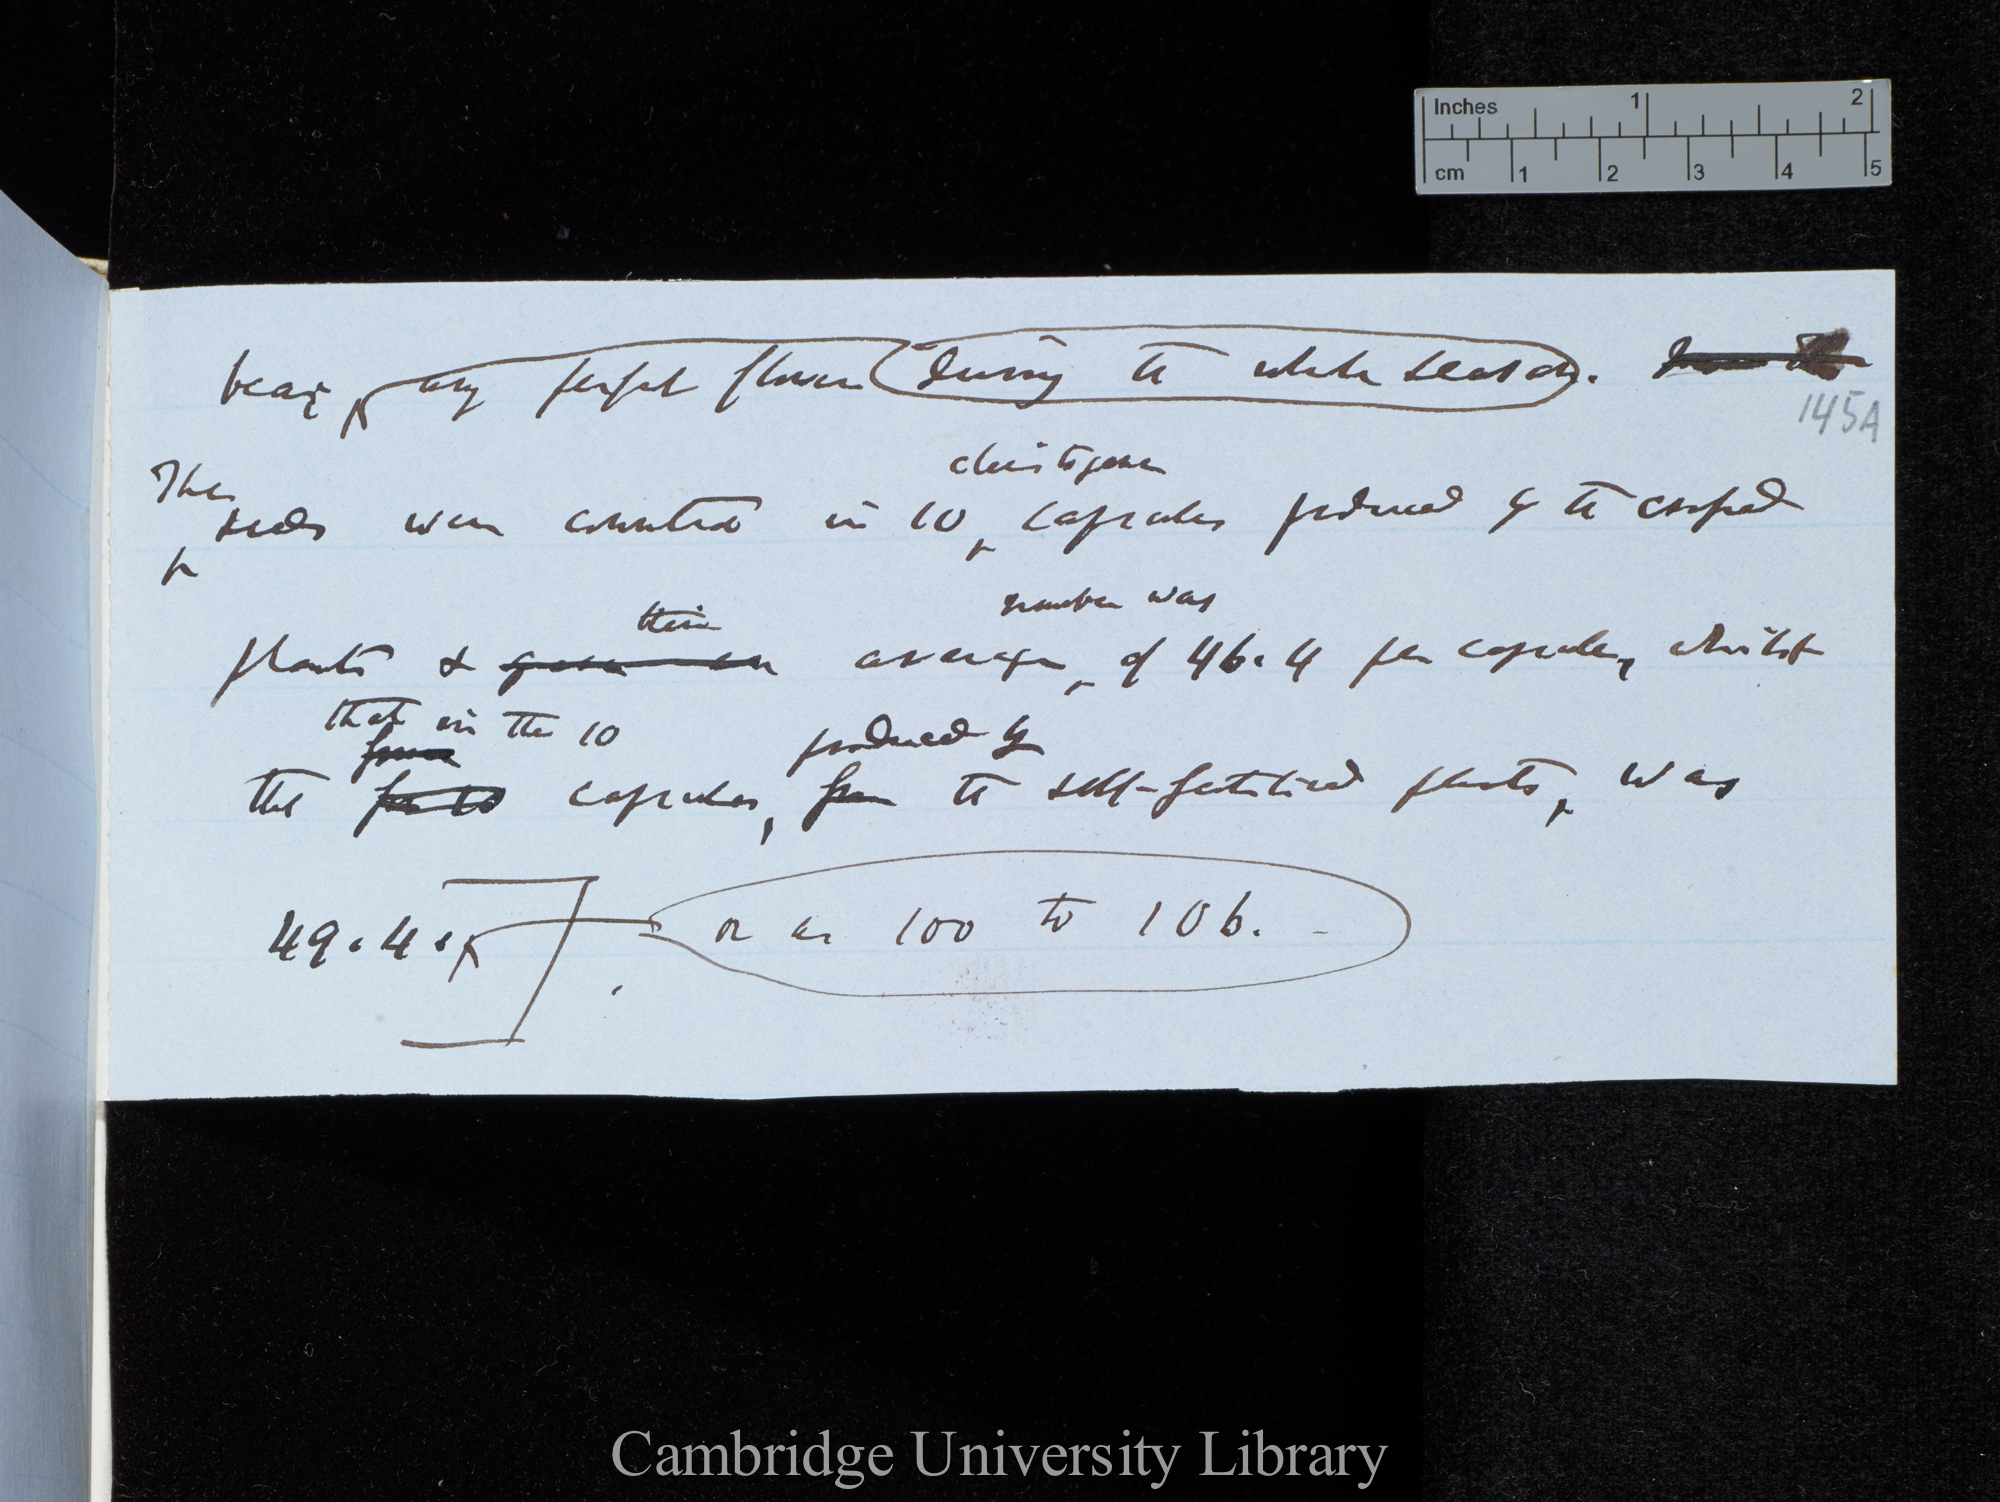 Inches 1 2
cm 1 2 3 4 5
bearg any perfect flowers during the whole season.
145A
cleistogene
The seeds were counted in 10 capsules produced by the crossed
their number was
plants & average of 46.4 per capsule, whilst
that in the 10 produced by
from
the for 10 capsules, from the self-fertilised plants, was
49.4. or as 100 to 106. -
Cambridge University Library